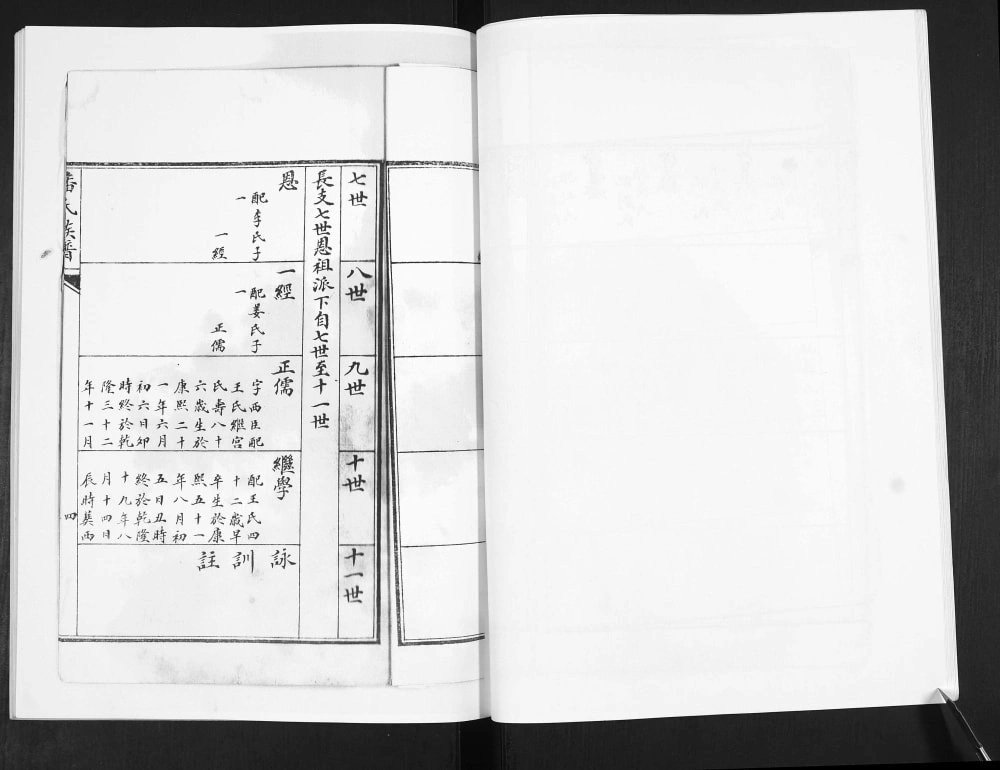 七世
八世
九世
十世
十一世
長支七世恩祖派下自七世至十一世
恩
配李氏子
一
一經
一經
配姜氏子
一
正儒
正儒
字西臣配
王氏繼宫
氏壽八十
六歲生於
康熙二十
一年六月
初六日卯
時終於乾
隆三十二
年十一月
繼學
配王氏四
十二歲早
卒生於康
熙五十一
年八月初
五日丑時
終於乾隆
十九年八
月十四日
辰時葬西
詠
訓
註
潘氏族譜
四